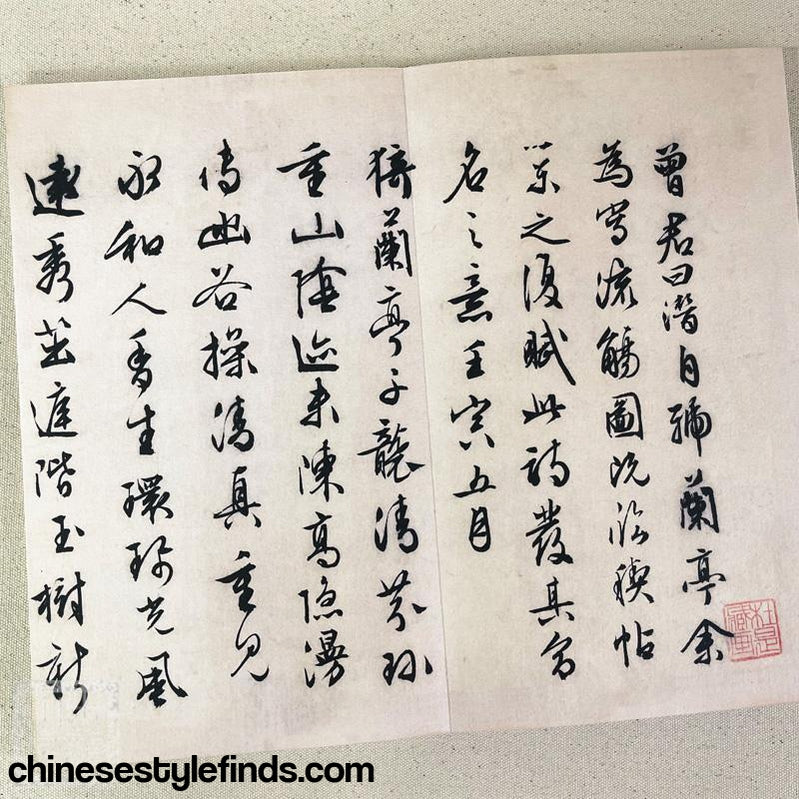 曾君曰潛自號蘭亭余
為寫流觴圖既臨禊帖
以系之復賦此詩發其命
名之意壬寅五月
猗蘭亭子襲清芬珍
重山陰迹未陳高隱漫
傳幽谷操清真重見
永和人香生環珮光風
遠秀茁庭階玉樹新
chinesestylefinds.com